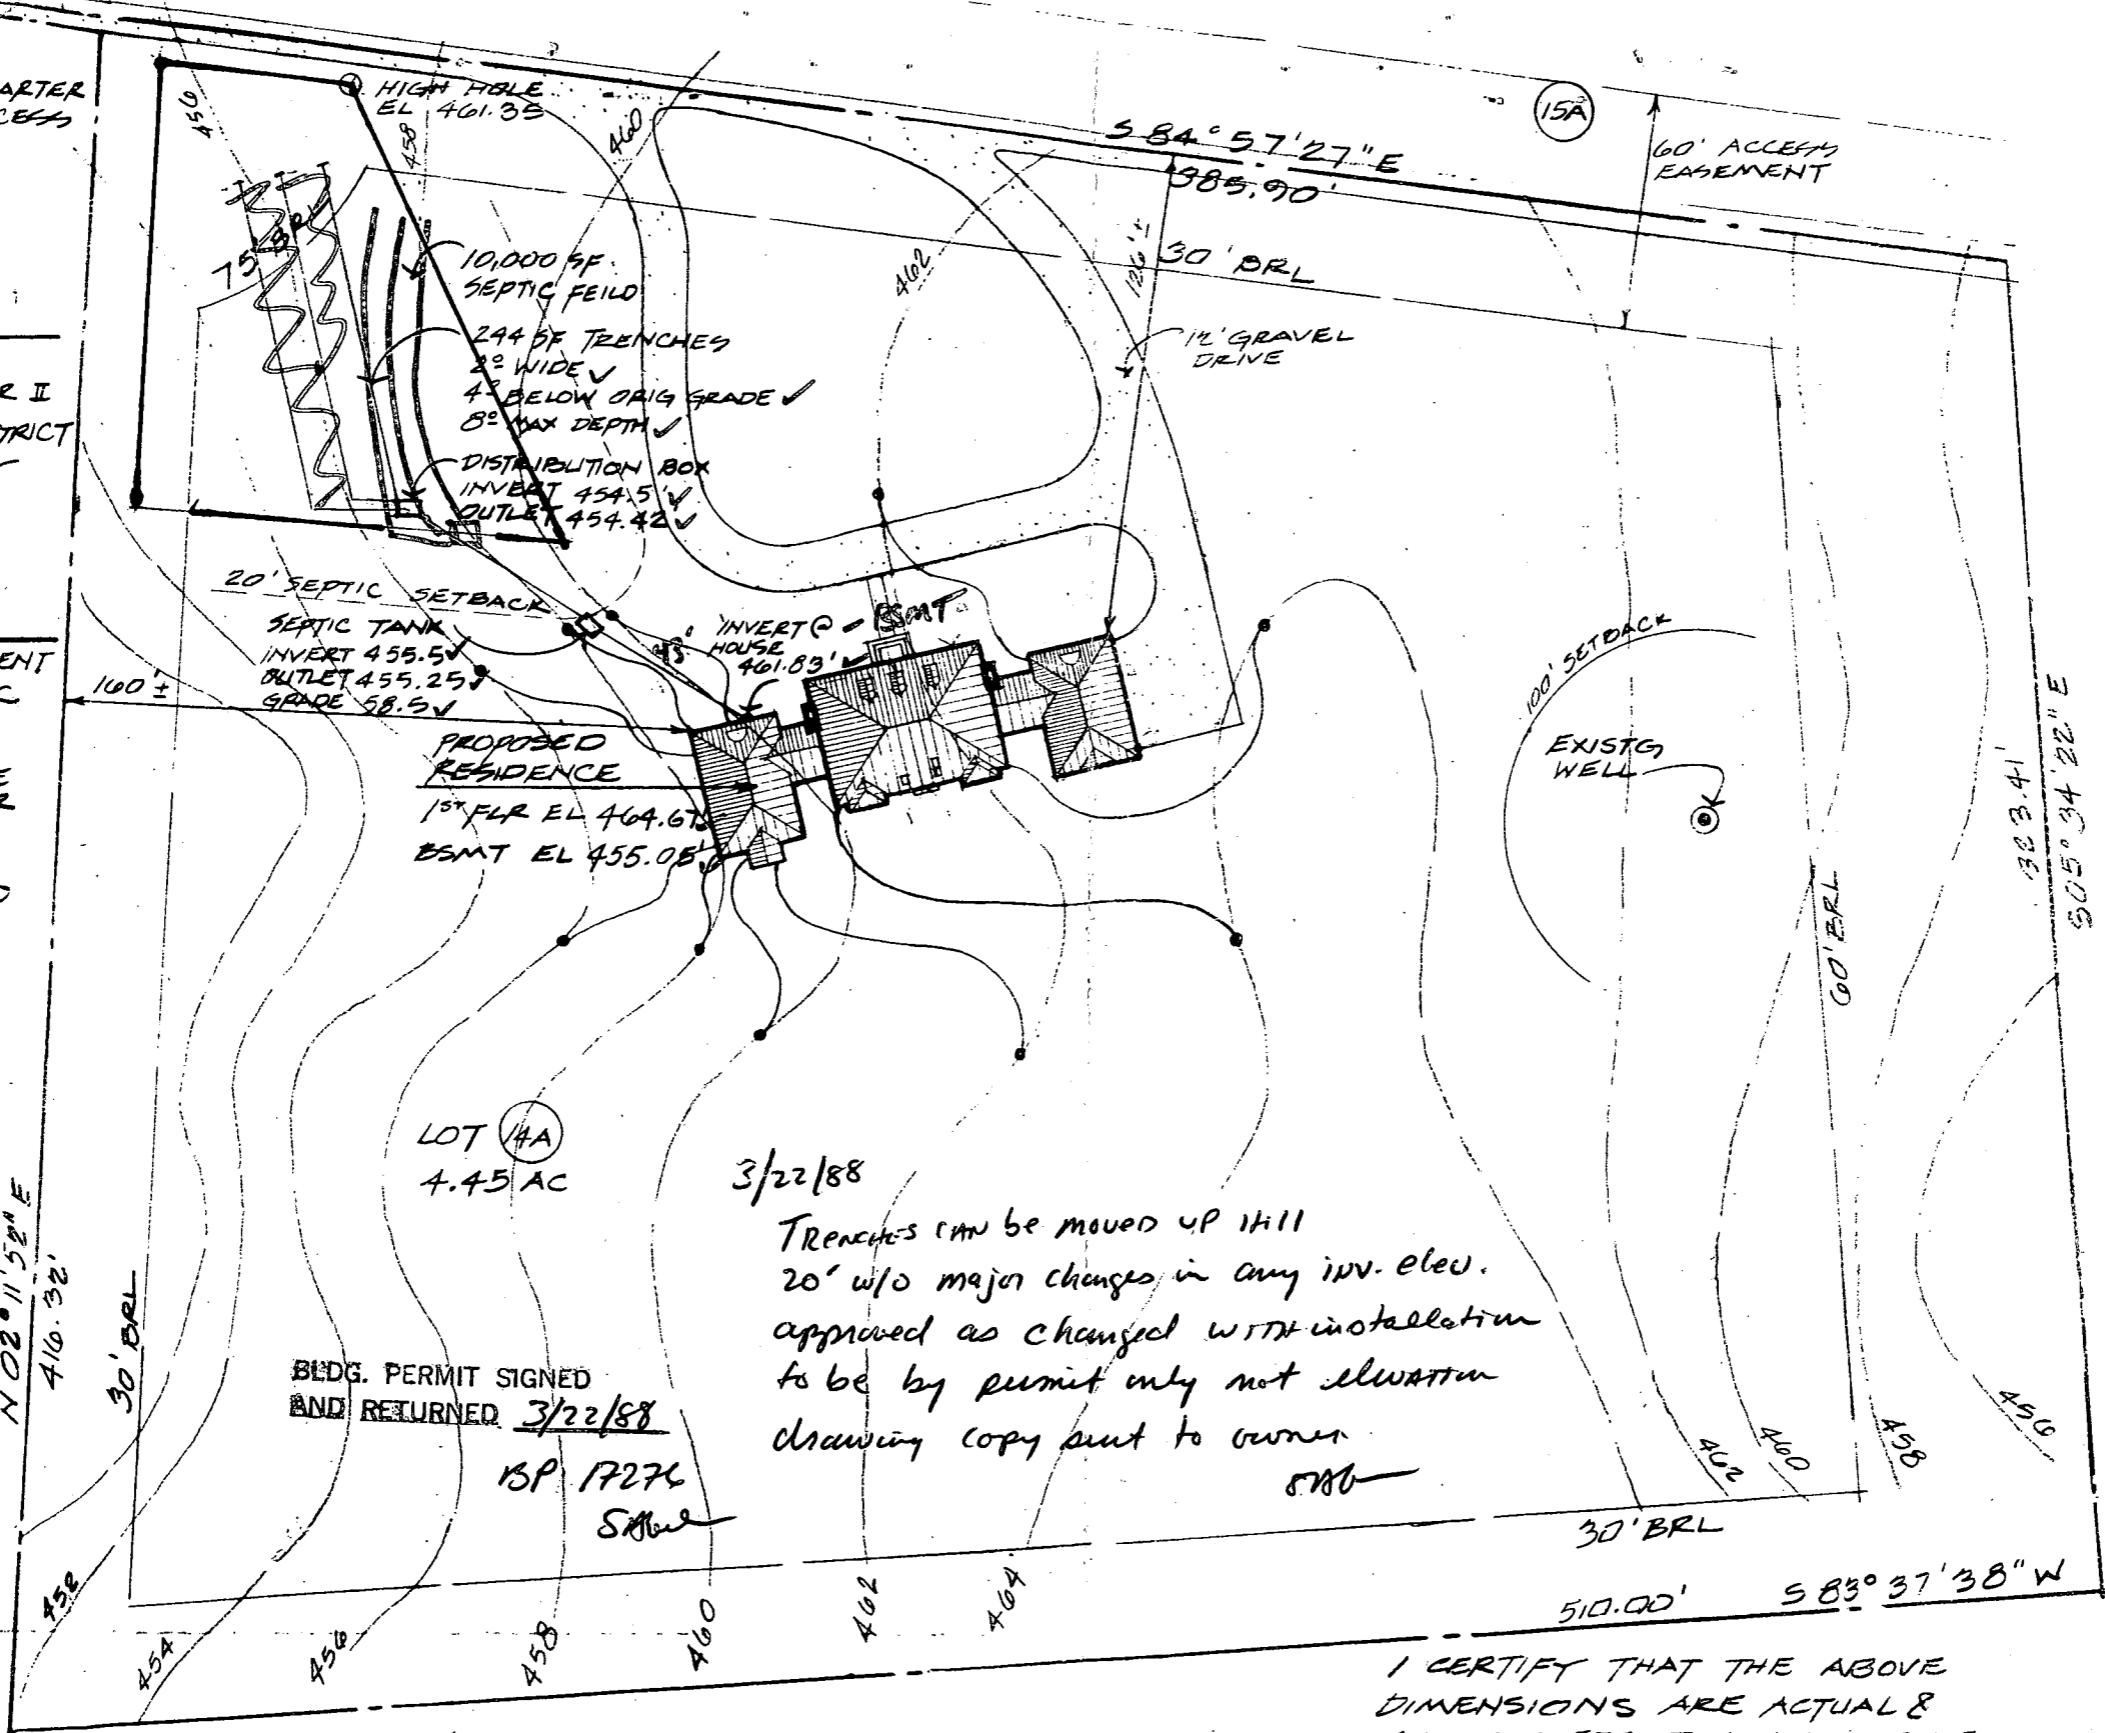 ARTER
CESS
R II
TRICT
ENT
C
HIGH HOLE
EL 461.35
456
458
460
75' BRL
10,000 SF.
SEPTIC FEILD
244 SF TRENCHES
2º WIDE ✓
4º BELOW ORIG GRADE ✓
8º MAX DEPTH ✓
DISTRIBUTION BOX
INVERT 454.5' ✓
OUTLET 454.42 ✓
S 84° 57' 27" E
385.90'
15A
60' ACCESS
EASEMENT
462
126'±
30' BRL
12' GRAVEL
DRIVE
20' SEPTIC SETBACK
SEPTIC TANK
INVERT 455.5 ✓
OUTLET 455.25 ✓
GRADE 58.5 ✓
160'±
45'
INVERT @
HOUSE
461.83' ✓
BSMT
PROPOSED
RESIDENCE
1ST FLR EL 464.67
BSMT EL 455.05 ✓
100' SETBACK
EXIST'G
WELL
323.41'
S05° 34' 22" E
60' BRL
LOT 14A
4.45 AC
3/22/88
TRENCHES CAN be moved up Hill
20' w/o major changes in any inv. elev.
approved as changed WITH installation
to be by permit only not elevation
drawing copy sent to owner
BLDG. PERMIT SIGNED
AND RETURNED 3/22/88
BP 17276
N 02° 11' 52" E
416.32'
30' BRL
462
460
458
456
30' BRL
510.00'
S 83° 37' 38" W
452
454
456
458
460
462
464
I CERTIFY THAT THE ABOVE
DIMENSIONS ARE ACTUAL &